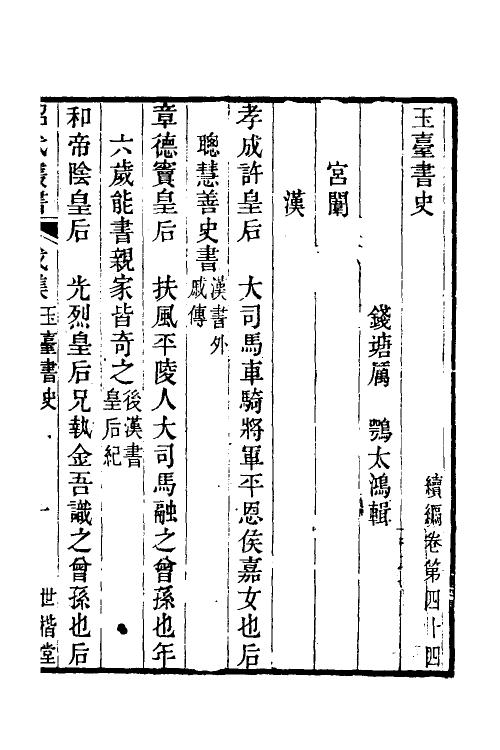 玉臺書史
續編卷第四十四
錢塘厲 鶚太鴻輯
宮闈
漢
孝成許皇后 大司馬車騎將軍平恩侯嘉女也后
聰慧善史書漢書外
戚傳
章德竇皇后 扶風平陵人大司馬融之曾孫也年
六歲能書親家皆奇之後漢書
皇后紀
和帝陰皇后 光烈皇后兄執金吾識之曾孫也后
昭代叢書
戊集玉臺書史
一
世楷堂